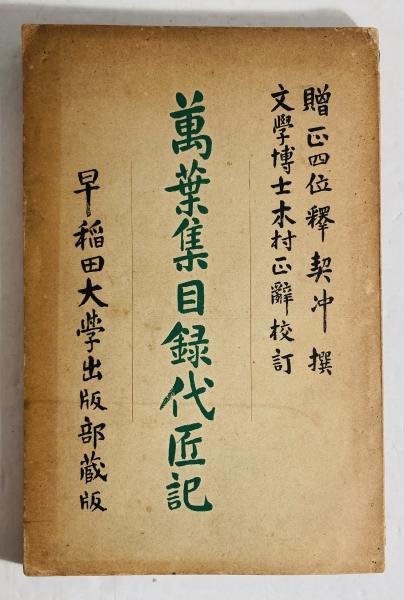 贈正四位釋契冲撰
文學博士木村正辭校訂
萬葉集目録代匠記
早稲田大学出版部蔵版